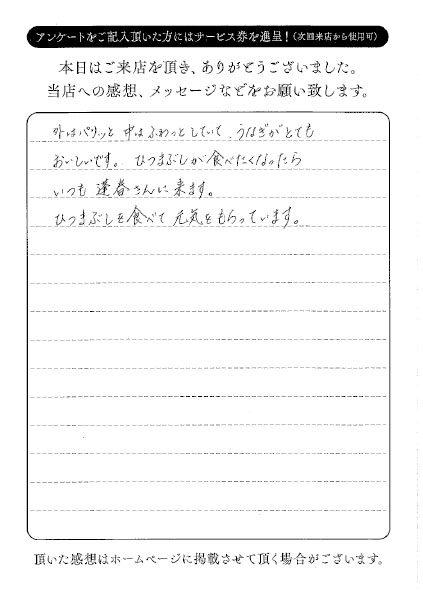 アンケートをご記入頂いた方にはサービス券を進呈！(次回来店から使用可)
本日はご来店を頂き、ありがとうございました。
当店への感想、メッセージなどをお願い致します。
外はパリッと 中はふわっとしていて、うなぎがとても
おいしいです。 ひつまぶしが食べたくなったら
いつも 蓬春さんに来ます。
ひつまぶしを食べて 元気をもらっています。
頂いた感想はホームページに掲載させて頂く場合がございます。